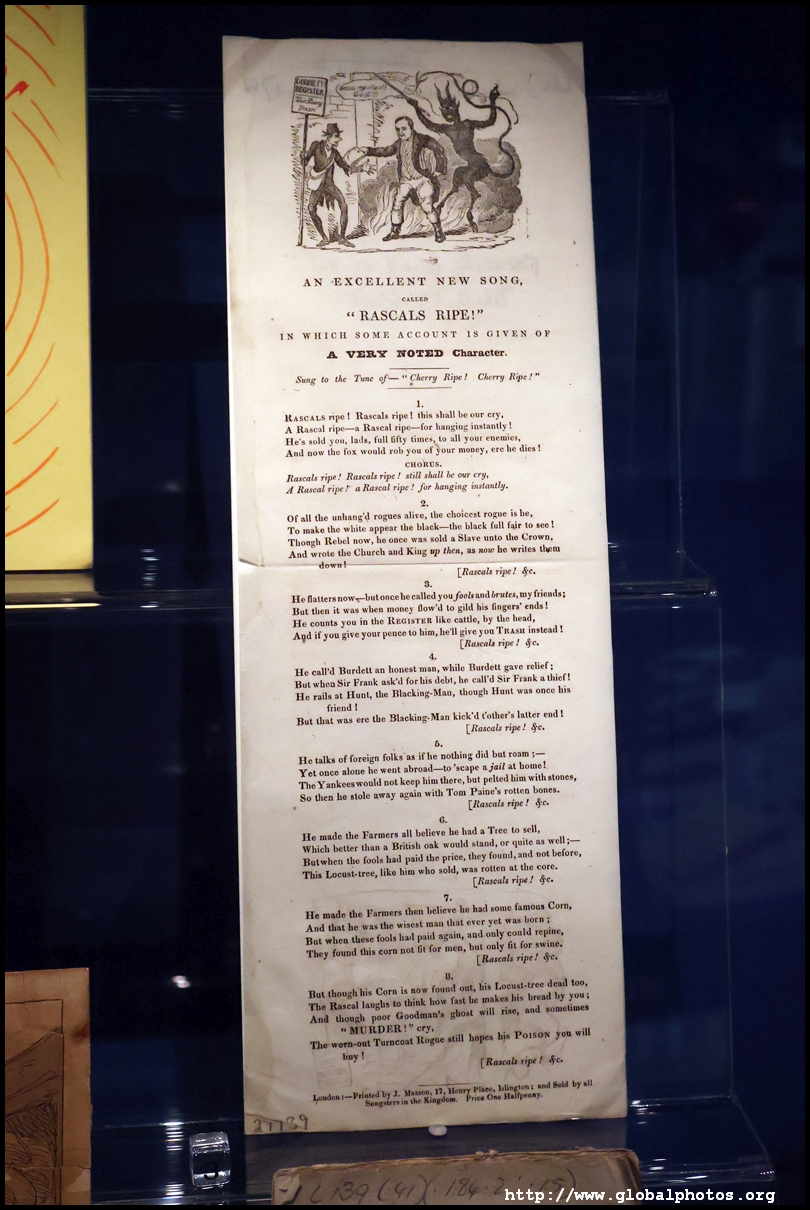 COBBETT
REGISTER
Two Penny
TRASH
AN EXCELLENT NEW SONG,
CALLED
“ RASCALS RIPE!”
IN WHICH SOME ACCOUNT IS GIVEN OF
A VERY NOTED Character.
Sung to the Tune of—“ Cherry Ripe! Cherry Ripe!”
1.
RASCALS ripe! Rascals ripe! this shall be our cry,
A Rascal ripe—a Rascal ripe—for hanging instantly!
He's sold you, lads, full fifty times, to all your enemies,
And now the fox would rob you of your money, ere he dies!
CHORUS.
Rascals ripe! Rascals ripe! still shall be our cry,
A Rascal ripe! a Rascal ripe! for hanging instantly.
2.
Of all the unhang'd rogues alive, the choicest rogue is he,
To make the white appear the black—the black full fair to see!
Though Rebel now, he once was sold a Slave unto the Crown,
And wrote the Church and King up then, as now he writes them
down!
[Rascals ripe! &c.
3.
He flatters now—but once he called you fools and brutes, my friends;
But then it was when money flow'd to gild his fingers' ends!
He counts you in the REGISTER like cattle, by the head,
And if you give your pence to him, he'll give you TRASH instead!
[Rascals ripe! &c.
4.
He call'd Burdett an honest man, while Burdett gave relief;
But when Sir Frank ask'd for his debt, he call'd Sir Frank a thief!
He rails at Hunt, the Blacking-Man, though Hunt was once his
friend!
But that was ere the Blacking-Man kick'd t'other's latter end!
[Rascals ripe! &c.
5.
He talks of foreign folks as if he nothing did but roam;—
Yet once alone he went abroad—to 'scape a jail at home!
The Yankees would not keep him there, but pelted him with stones,
So then he stole away again with Tom Paine's rotten bones.
[Rascals ripe! &c.
6.
He made the Farmers all believe he had a Tree to sell,
Which better than a British oak would stand, or quite as well;—
But when the fools had paid the price, they found, and not before,
This Locust-tree, like him who sold, was rotten at the core.
[Rascals ripe! &c.
7.
He made the Farmers then believe he had some famous Corn,
And that he was the wisest man that ever yet was born;
But when these fools had paid again, and only could repine,
They found this corn not fit for men, but only fit for swine.
[Rascals ripe! &c.
8.
But though his Corn is now found out, his Locust-tree dead too,
The Rascal laughs to think how fast he makes his bread by you;
And though poor Goodman's ghost will rise, and sometimes
“MURDER!” cry,
The worn-out Turncoat Rogue still hopes his POISON you will
buy!
[Rascals ripe! &c.
London:—Printed by J. Masson, 17, Henry Place, Islington; and Sold by all
Songsters in the Kingdom. Price One Halfpenny.
http://www.globalphotos.org